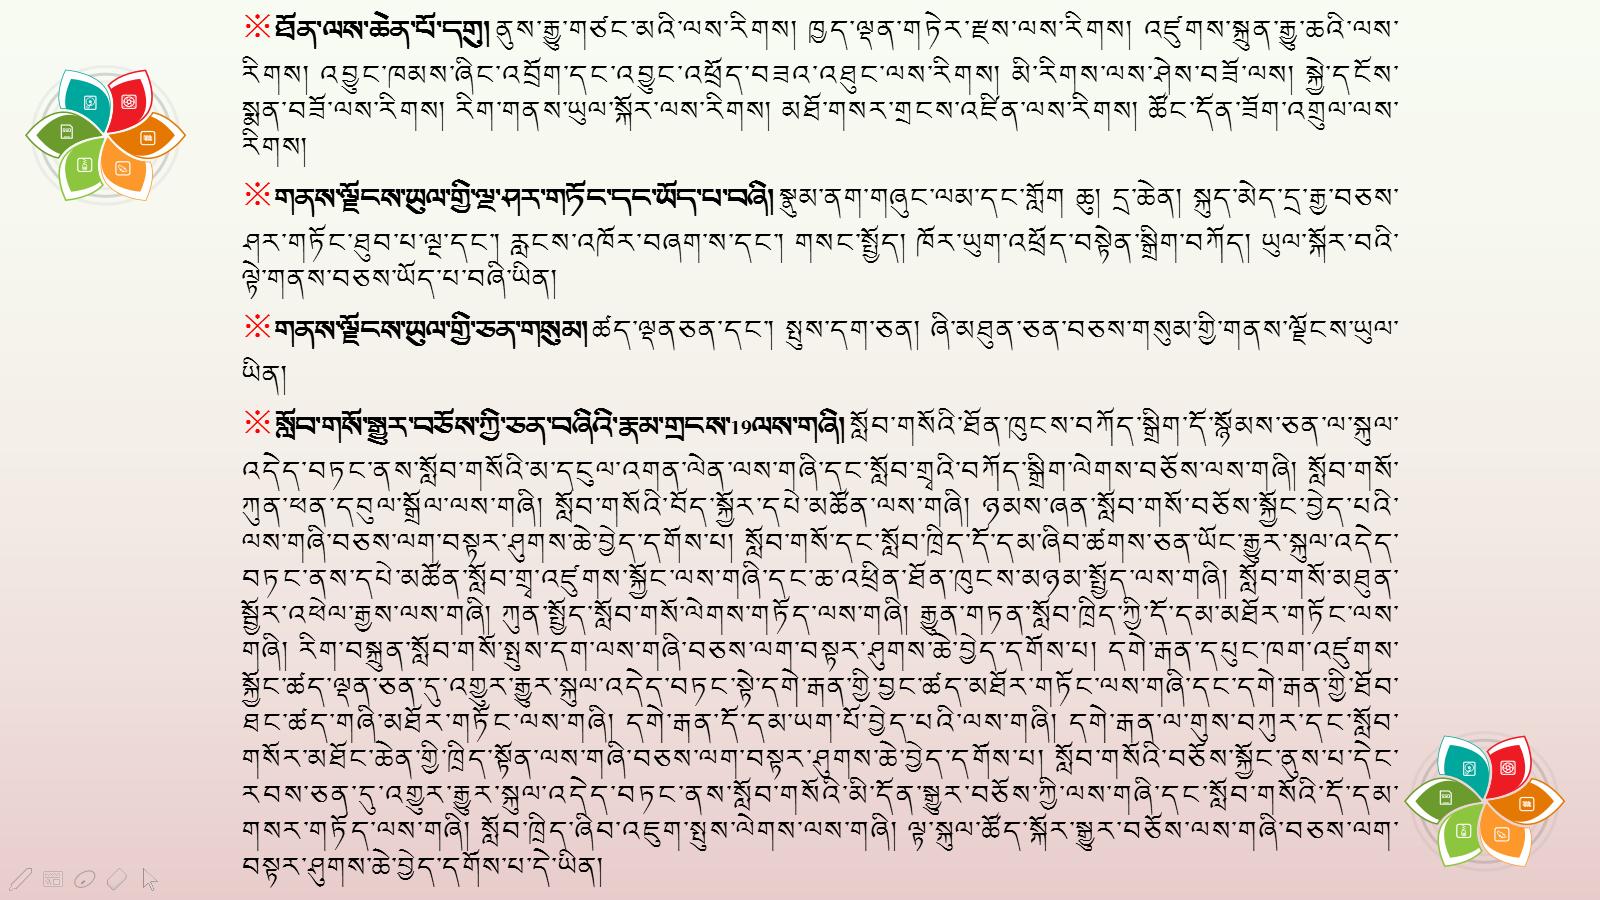 ※ཐོན་ལས་ཆེན་པོ་དགུ། ནུས་རྒྱུ་གཙང་མའི་ལས་རིགས། ཁྱད་ལྡན་གཏེར་རྫས་ལས་རིགས། འཛུགས་སྐྲུན་རྒྱུ་ཆའི་ལས་
རིགས། འབྱུང་ཁམས་ཞིང་འབྲོག་དང་འབྱུང་འཕྲོད་བཟའ་འཐུང་ལས་རིགས། མི་རིགས་ལས་ཤེས་བཟོ་ལས། སྐྱེ་དངོས་
སྨན་བཟོ་ལས་རིགས། རིག་གནས་ཡུལ་སྐོར་ལས་རིགས། མཐོ་གསར་གྲངས་འཛིན་ལས་རིགས། ཚོང་དོན་ཟོག་འགྲུལ་ལས་
རིགས།
※གནས་ལྗོངས་ཡུལ་གྱི་ལྔ་ཤར་གཏོང་དང་ཡོད་པ་བཞི། སྣུམ་ནག་གཞུང་ལམ་དང་གློག ཆུ། དྲ་ཆེན། སྐུད་མེད་དྲ་རྒྱ་བཅས་
ཤར་གཏོང་ཐུབ་པ་ལྔ་དང་། རླངས་འཁོར་བཞག་ས་དང་། གསང་སྤྱོད། ཁོར་ཡུག་འཕྲོད་བསྟེན་སྒྲིག་བཀོད། ཡུལ་སྐོར་བའི་
ལྟེ་གནས་བཅས་ཡོད་པ་བཞི་ཡིན།
※གནས་ལྗོངས་ཡུལ་གྱི་ཅན་གསུམ། ཚད་ལྡན་ཅན་དང་། སྤུས་དག་ཅན། ཞི་མཐུན་ཅན་བཅས་གསུམ་གྱི་གནས་ལྗོངས་ཡུལ་
ཡིན།
※སློབ་གསོ་སྒྱུར་བཅོས་ཀྱི་ཅན་བཞིའི་རྣམ་གྲངས་19ལས་གཞི། སློབ་གསོའི་ཐོན་ཁུངས་བཀོད་སྒྲིག་དོ་སྙོམས་ཅན་ལ་སྐུལ་
འདེད་བཏང་ནས་སློབ་གསོའི་མ་དངུལ་འགན་ལེན་ལས་གཞི་དང་སློབ་གྲྭའི་བཀོད་སྒྲིག་ལེགས་བཅོས་ལས་གཞི། སློབ་གསོ་
ཀུན་ཕན་དབུལ་སྒྲོལ་ལས་གཞི། སློབ་གསོའི་བོད་སྐྱོར་དཔེ་མཚོན་ལས་གཞི། ཉམས་ཞན་སློབ་གསོ་བཅོས་སྐྱོང་བྱེད་པའི་
ལས་གཞི་བཅས་ལག་བསྟར་ཤུགས་ཆེ་བྱེད་དགོས་པ། སློབ་གསོ་དང་སློབ་ཁྲིད་དོ་དམ་ཞིབ་ཚགས་ཅན་ཡོང་རྒྱུར་སྐུལ་འདེད་
བཏང་ནས་དཔེ་མཚོན་སློབ་གྲྭ་འཛུགས་སྐྱོང་ལས་གཞི་དང་ཆ་འཕྲིན་ཐོན་ཁུངས་མཉམ་སྤྱོད་ལས་གཞི། སློབ་གསོ་མཐུན་
སྦྱོར་འཕེལ་རྒྱས་ལས་གཞི། ཀུན་སྤྱོད་སློབ་གསོ་ལེགས་གཏོད་ལས་གཞི། རྒྱུན་གཏན་སློབ་ཁྲིད་ཀྱི་དོ་དམ་མཐོར་གཏོང་ལས་
གཞི། རིག་བསྐྲུན་སློབ་གསོ་སྤུས་དག་ལས་གཞི་བཅས་ལག་བསྟར་ཤུགས་ཆེ་བྱེད་དགོས་པ། དགེ་རྒན་དཔུང་ཁག་འཛུགས་
སྐྱོང་ཚད་ལྡན་ཅན་དུ་འགྱུར་རྒྱུར་སྐུལ་འདེད་བཏང་སྟེ་དགེ་རྒན་གྱི་བྱང་ཚད་མཐོར་གཏོང་ལས་གཞི་དང་དགེ་རྒན་གྱི་ཐོབ་
ཐང་ཚད་གཞི་མཐོར་གཏོང་ལས་གཞི། དགེ་རྒན་དོ་དམ་ཡག་པོ་བྱེད་པའི་ལས་གཞི། དགེ་རྒན་ལ་གུས་བཀུར་དང་སློབ་
གསོར་མཐོང་ཆེན་གྱི་ཁྲིད་སྟོན་ལས་གཞི་བཅས་ལག་བསྟར་ཤུགས་ཆེ་བྱེད་དགོས་པ། སློབ་གསོའི་བཅོས་སྐྱོང་ནུས་པ་དེང་
རབས་ཅན་དུ་འགྱུར་རྒྱུར་སྐུལ་འདེད་བཏང་ནས་སློབ་གསོའི་མི་དོན་སྒྱུར་བཅོས་ཀྱི་ལས་གཞི་དང་སློབ་གསོའི་དོ་དམ་
གསར་གཏོད་ལས་གཞི། སློབ་ཁྲིད་ཞིབ་འཇུག་སྤུས་ལེགས་ལས་གཞི། ལྟ་སྐུལ་ཚོད་སྐོར་སྒྱུར་བཅོས་ལས་གཞི་བཅས་ལག་
བསྟར་ཤུགས་ཆེ་བྱེད་དགོས་པ་དེ་ཡིན།